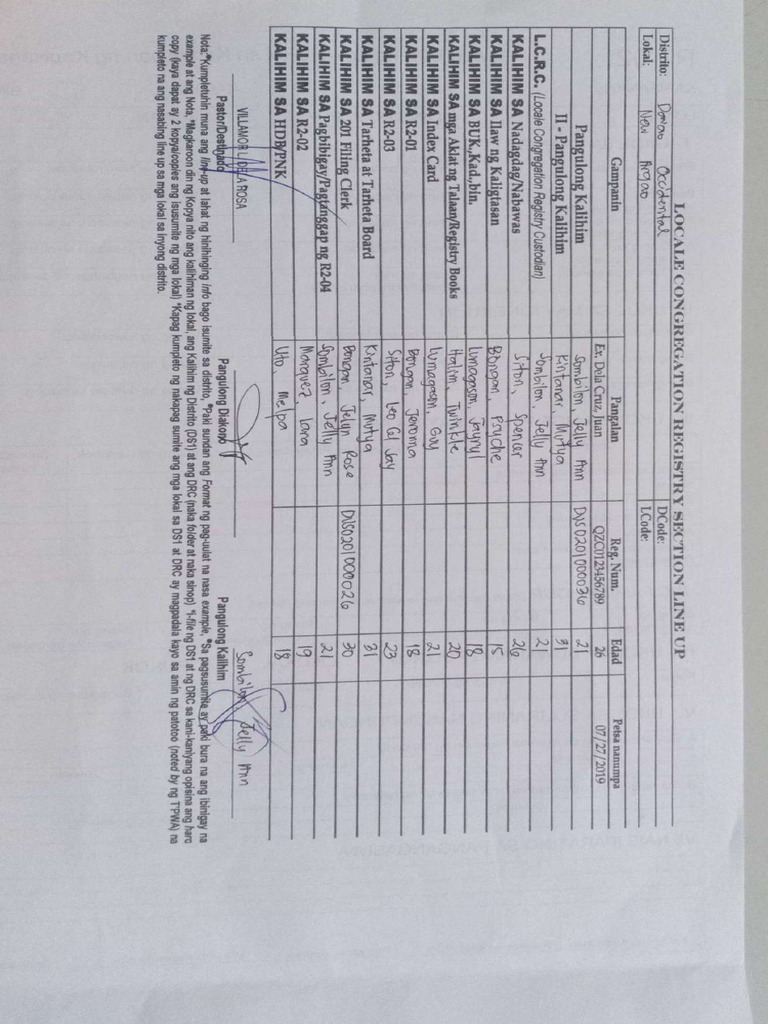 LOCALE CONGREGATION REGISTRY SECTION LINE UP
Distrito: Davao Occidental DCode:
Lokal: New Argao LCode:
Gampanin Pangalan Reg. Num. Edad Petsa nanumpa
Ex. Dela Cruz, Juan QZC0123456789 26 07/27/2019
Pangulong Kalihim Sombilon Jelly Ann DVS0201000036 21
II - Pangulong Kalihim Kintanar, Mutya 31
L.C.R.C. (Locale Congregation Registry Custodian) Sombilon, Jelly Ann 21
KALIHIM SA Nadagdag/Nabawas Siton, Spencer 26
KALIHIM SA Ilaw ng Kaligtasan Bongan, Psyche 15
KALIHIM SA BUK,,Kad.,bln. Lumagason, Jayryl 18
KALIHIM SA mga Aklat ng Talaan/Registry Books Halim, Twinkle 20
KALIHIM SA Index Card Lumagason, Guy 21
KALIHIM SA R2-01 Bongan, Jeromia 18
KALIHIM SA R2-03 Siton, Leo Gil Jay 23
KALIHIM SA Tarheta at Tarheta Board Kintanar, Mutya 31
KALIHIM SA 201 Filing Clerk Bongan, Jelyn Rose DVS0201000026 30
KALIHIM SA Pagbibigay/Pagtanggap ng R2-04 Sombilon, Jelly Ann 21
KALIHIM SA R2-02 Marquez, Lara 19
KALIHIM SA HDB/PNK Uto, Melpa 18
VILLAMOR L. DELA ROSA Sombilon, Jelly Ann
Pastor/Destinado Pangulong Diakono Pangulong Kalihim
Nota:*Kumpletuhin muna ang line-up at lahat ng hinihinging info bago isumite sa distrito, *Paki sundan ang Format ng pag-uulat na nasa example, *Sa pagsusumite ay paki bura na ang ibinigay na
example at ang Nota, *Magkaroon din ng Kopya nito ang kalihiman ng lokal, ang Kalihim ng Distrito (DS1) at ang DRC (naka folder at naka sinop) *I-file ng DS1 at ng DRC sa kani-kaniyang opisina ang hard
copy (kaya dapat ay 2 kopya/copies ang isusumite ng mga lokal) *Kapag kumpleto ng nakapag sumite ang mga lokal sa DS1 at DRC ay magpadala kayo sa amin ng patotoo (noted by ng TPWA) na
kumpleto na ang nasabing line up sa mga lokal sa inyong distrito.